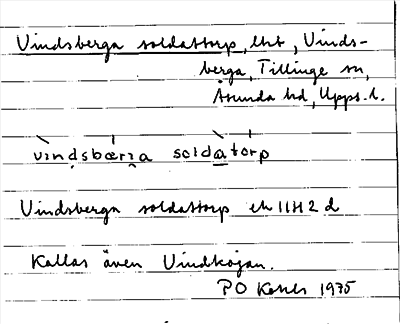 Vindsberga soldattorp, lht, Vinds-
berga, Tillinge sn,
Åsunda hd, Upps. l.
vindsbæria soldatorp
Vindsberga soldattorp ek 11H2d
Kallas även Vindkojan.
PO 1975